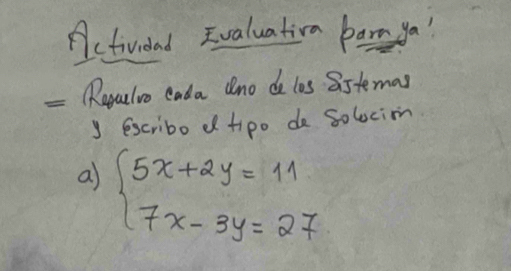 Actividad Evaluativa para ya!
= Resuelvo cada Uno de los Sistemas
y Escribo el tipo de Solución.
a) { 5x+2y = 11
7x - 3y = 27